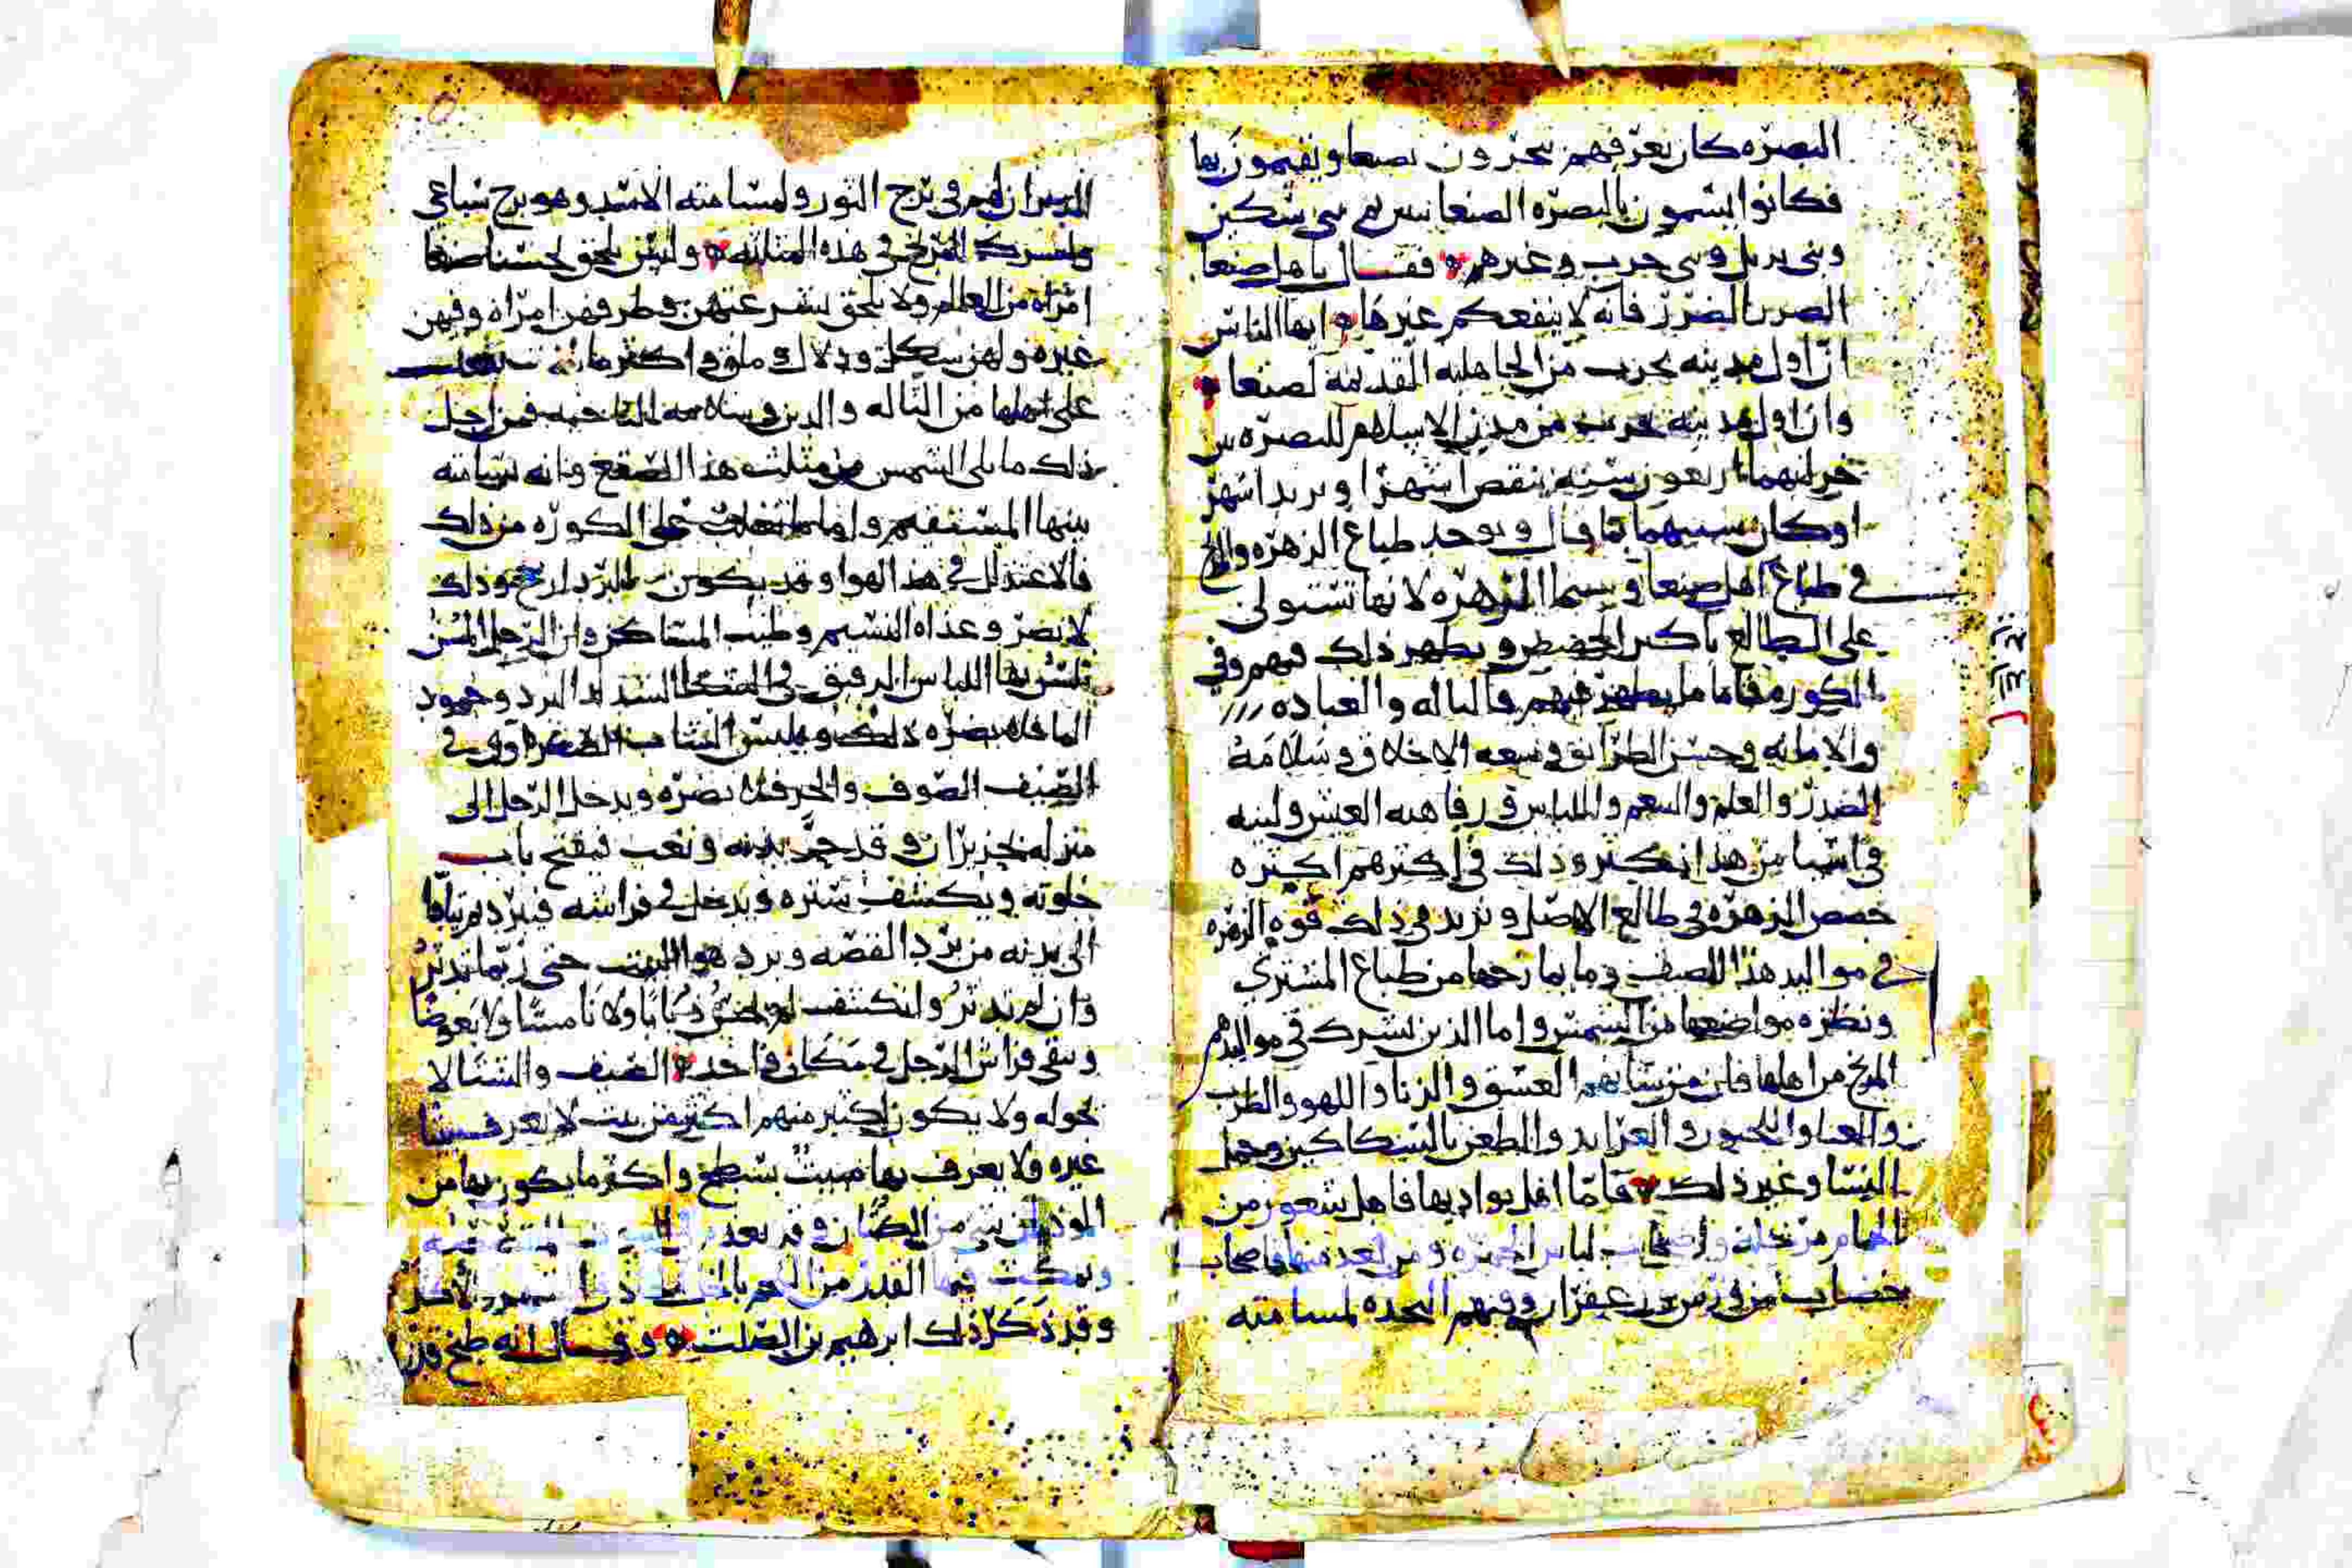 البصره كان يعرفهم يتجرون بصنعا ويقيمون بها
فكانوا يسمون بالبصره الصنعانيين بني سكين
وبني بديل وبني حرب وغيرهم فقال يا هل صنعا
الصبر بالضرر فانه لا ينفعكم غيرها ايها الناس
ان اول مدينه تخرب من الجاهليه القديمه لصنعا
وان اول مدينه تخرب من مدن الاسلام للبصره بين
خرابهما اربعون سنه ينقص اشهرا ويزيد اشهر
اوكان سنيهما ما قال ويوجد طباع الزهره والمريخ
في طباع اهل صنعا و سيما الزهره لانها تستولي
على الطالع باكثر الحصص ويظهر ذلك فيهم وفي
الكوره فاما ما يظهر فيهم فالتاله والعباده
والامانه وحسن الطرايق وسعه الاخلاق وسلامه
الصدر والعلم والنعم واللباس ورفاهيه العيش ولينه
في اشيا من هذا تكثر وذلك في اكثرهم اكثره
حصص الزهره في طالع الاصل وتزيد في ذلك قوه الزهره
في مواليد هذا الصنف وما يمازجها من طباع المشتري
ونظره مواضعها من الشمس واما الذين تشرك في مواليدهم
المريخ من اهلها فان من شانهم العشق والزنا واللهو والطرب
والغنا والمجون و العرابد والطعن بالسكاكين وحمل
النشا وغير ذلك فاما اهل بواديها فاهل شعور من
الهام مرجله واصحاب لباس الحمره ومن بعد منها فاصحاب
خضاب من ورس وزعفران وفيهم النجده لمسامته
الدبران لهم في برج الثور ولمسامته الاسد وهو برج سباعي
ولشرك المريخ في هذه المثلثه وليس يلحق بحسنا صنعا
امراه من العالم ولا يلحق بسرعتهن وظرفهن امراه وفيهن
غيره ولهن شكل ودلال وملق واكثر ما
على اهلها من التاله والدين وسلامه الناحيه فمن اجل
ذلك ما يلي الشمس من مثلث هذا الصقع وانه سامته
بيتها المستقيم واما ما يغلب على الكوره من ذلك
فالاعتدال في هذ الهوا وقد يكون البرد اربح وذلك
لا يضر وغذاه النسيم وطيب المساكن وان الرجل المسن
يلبس بها اللباس الرقيق في الشتا لشده البرد وجمود
الما فلا يضره ذلك ويلبس الشاب الصفراوي في
الصيف الصوف والخز فلا يضره ويدخل الرجل الى
منزله بحزيران وقد حمي بدنه وتعب فيفتح باب
خلوته ويكشف ستره ويدخل في فراشه فيبرد مرتبا
الى بدنه من برد القصه وبرد هوا البيت حتى ربما تدثر
وان لم يتدثر وانكشف لم يخش ذبابا ولا نامسا ولا بعوضا
ويبقى فراش الرجل في مكان واحد الصيف والشتا لا
يحوله ولا يكون اكثير منهم اكثر من بيت لا يعرف بيتا
غيره ولا يعرف بها مبيت بسطح واكثر ما يكون بها من
الموذيات شي من الصيبان وقد يعدم
ويمكث فيها القدر من اللحم بالخل
وقد ذكر ذلك ابرهيم بن الصلت وقال انه طبخ قدرا